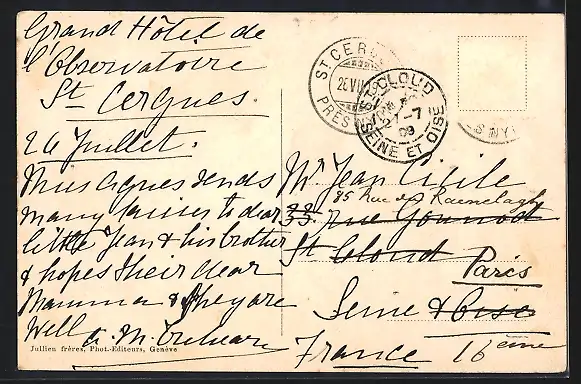 Grand Hôtel de
l'Observatoire
St. Cergues.
24 Juillet.
Miss Agnes sends
many kisses to dear
little Jean & his brother
& hopes their dear
Mamma & they are
well
Jullien frères, Phot.-Editeurs, Genève
ST CERGUES
26 VII
PRÈS NYON
ST-CLOUD
27-7
09
SEINE ET OISE
S NY
Mr Jean
85 Rue du Ranelagh
33 rue Gounod
St Cloud Paris
Seine & Oise
France 16ème